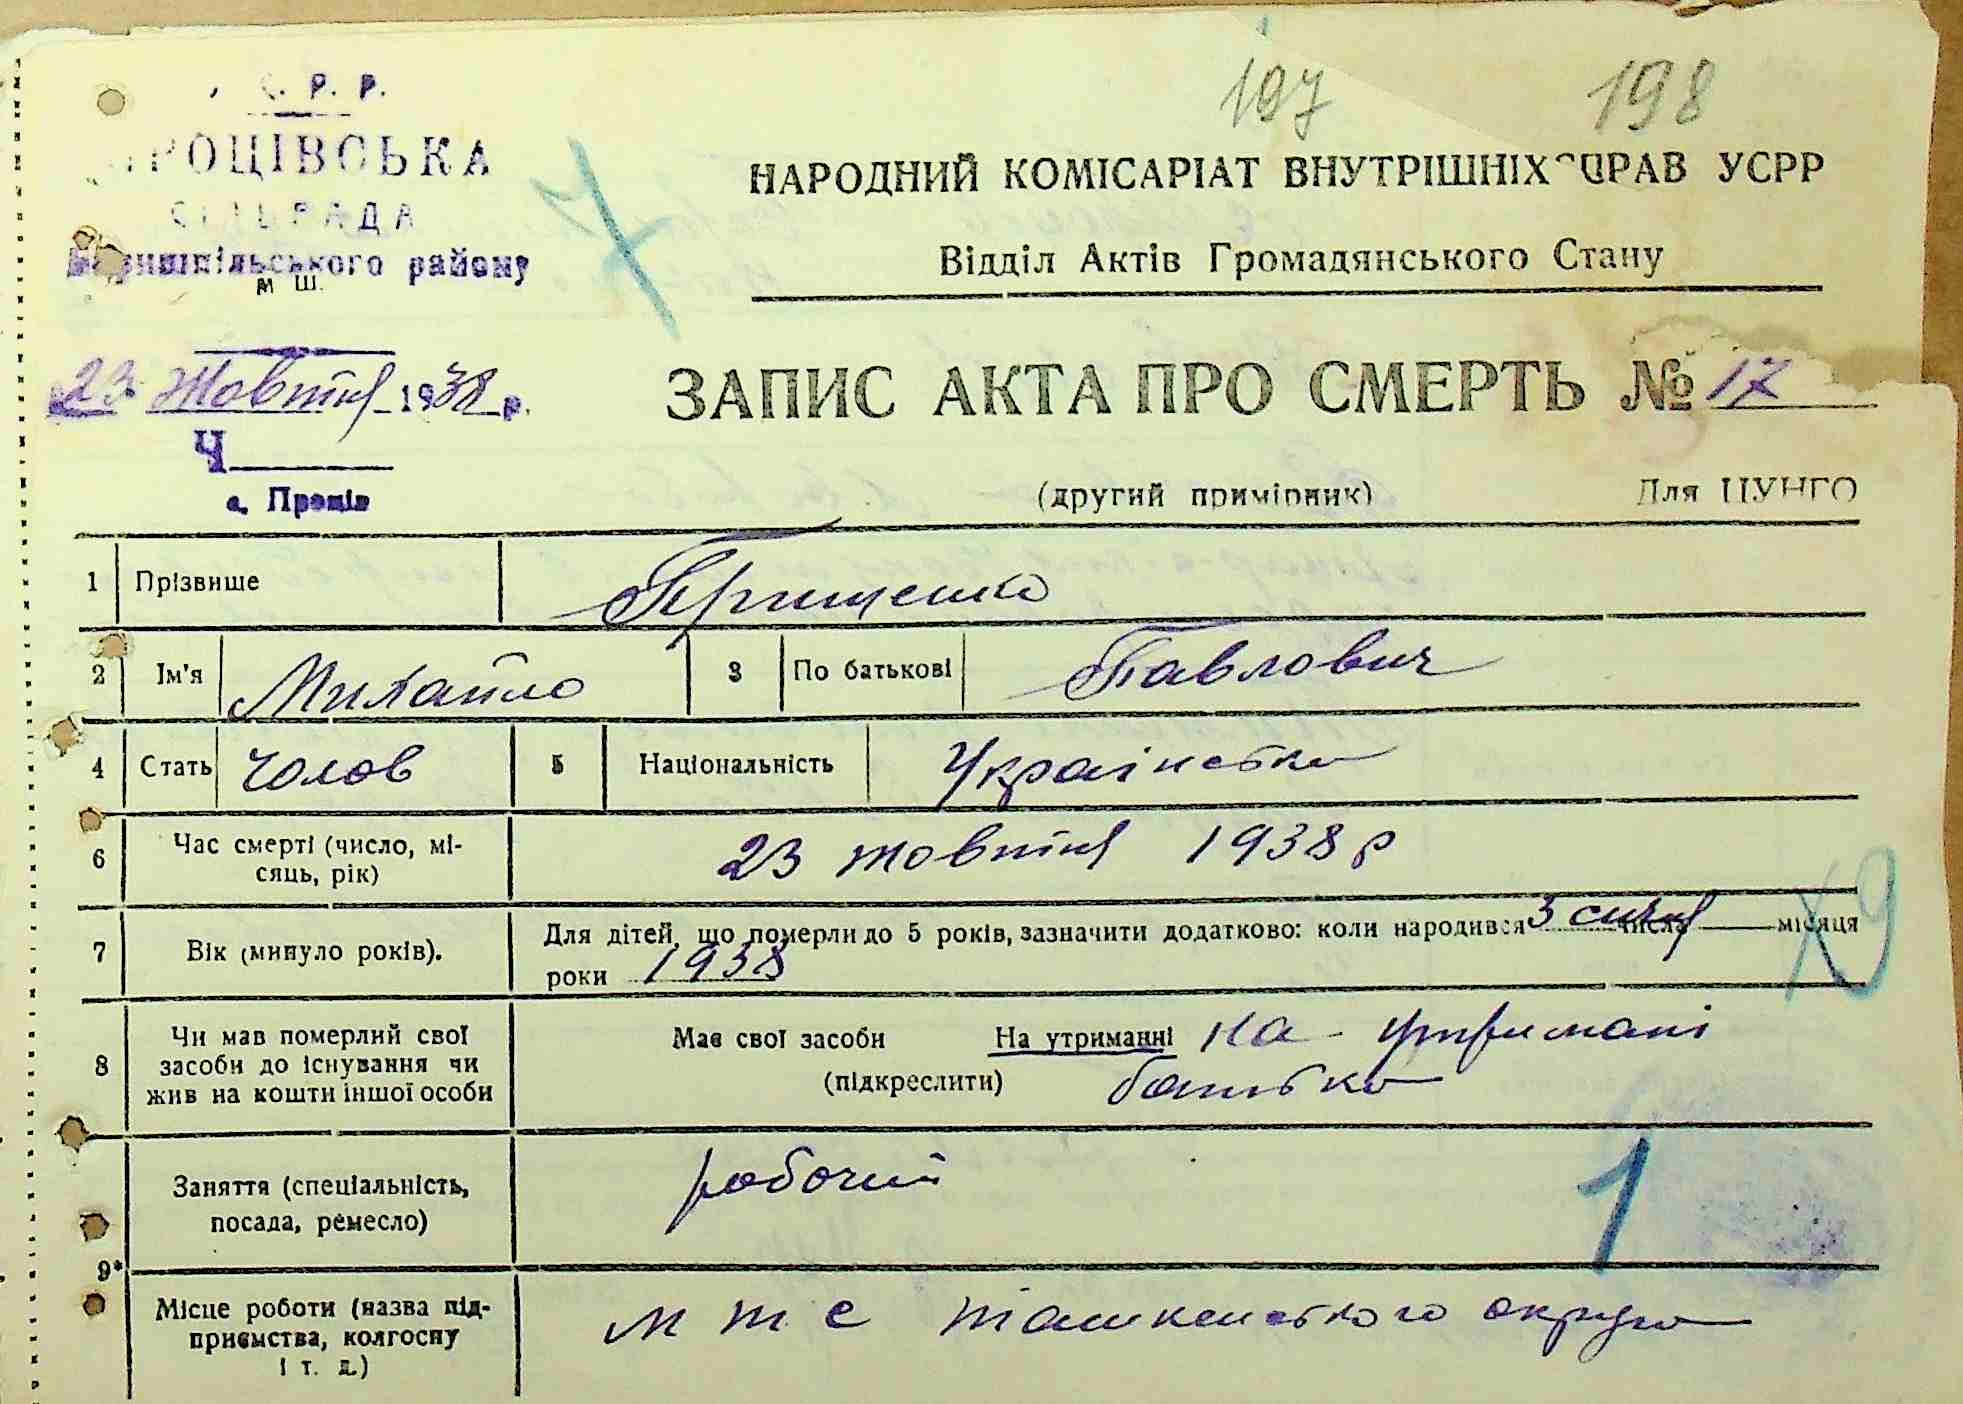 197 198
С. Р. Р.
РОЦІВСЬКА
СІЛЬРАДА
Боришпільського району
м ш.
7
НАРОДНИЙ КОМІСАРІАТ ВНУТРІШНІХ СПРАВ УСРР
Відділ Актів Громадянського Стану
23 Жовтня 1938 р.
Ч
с. Проців
ЗАПИС АКТА ПРО СМЕРТЬ № 17
(другий примірник) Для ЦУНГО
1 Прізвище Грищенко
2 Ім'я Михайло 3 По батькові Павлович
4 Стать чолов 5 Національність Українська
6 Час смерті (число, мі-
сяць, рік) 23 жовтня 1938 р
7 Вік (минуло років). Для дітей, що померли до 5 років, зазначити додатково: коли народився 3 січня числа місяця
роки 1938
Х9
8 Чи мав померлий свої
засоби до існування чи
жив на кошти іншої особи
Має свої засоби На утриманні на утримані
(підкреслити) батька
Заняття (спеціальність,
посада, ремесло) робочий
1
9*
Місце роботи (назва під-
приємства, колгоспу
і т. д.)
м т с ташкенского округа